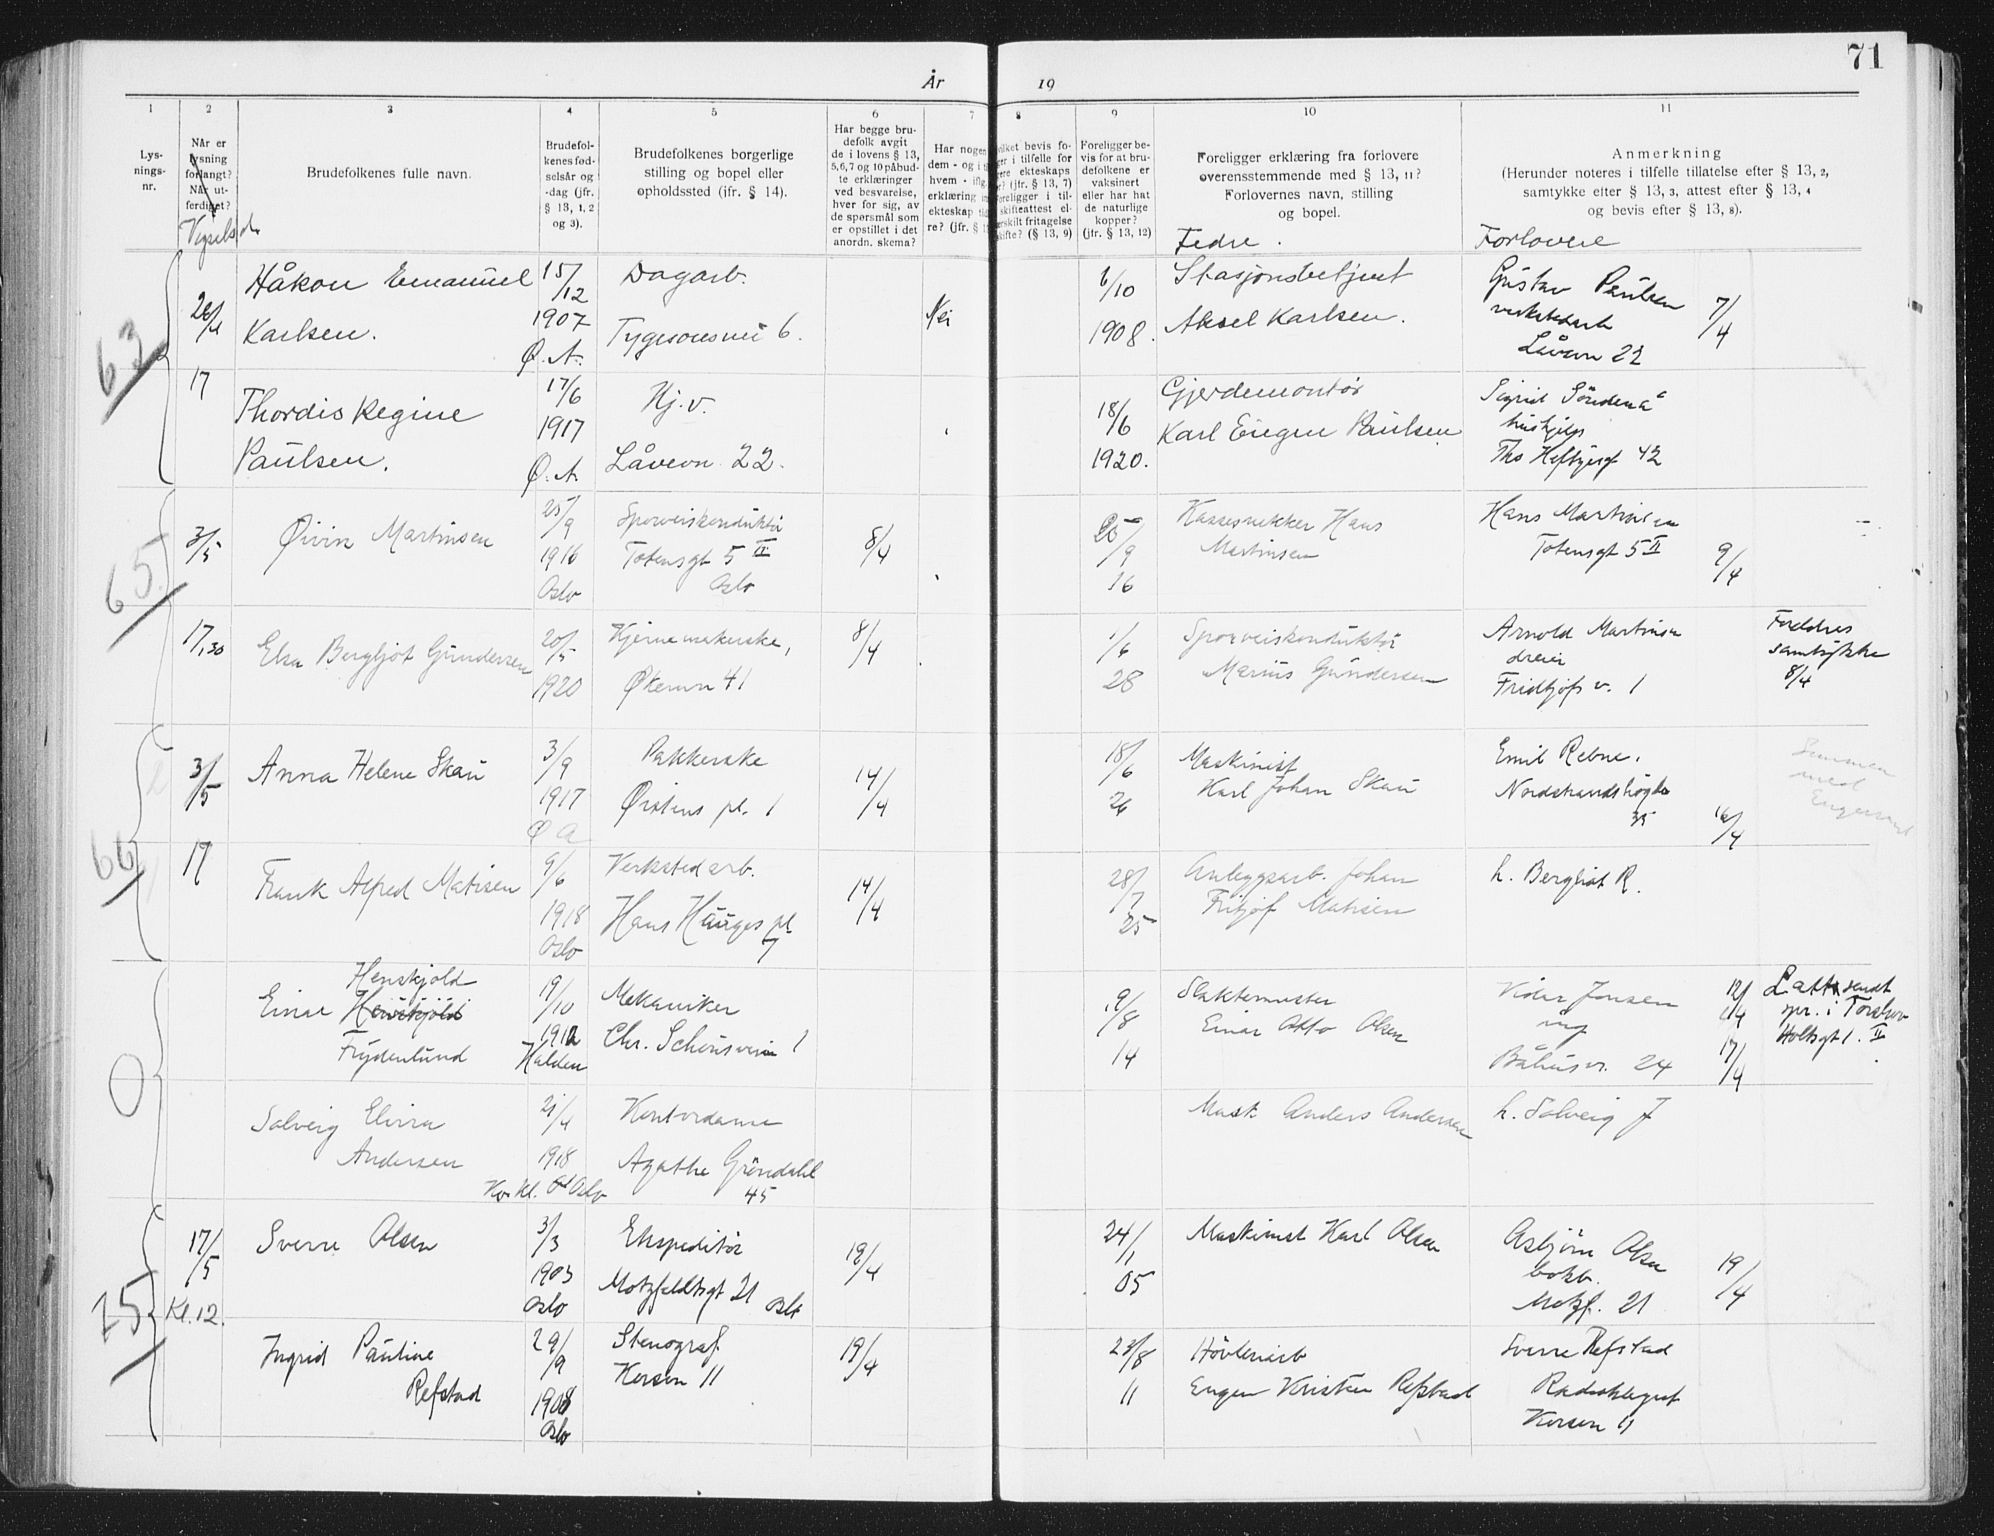 71
År 19
1 2 3 4 5 6 7 8 9 10 11
Lys-
nings-
nr.
Når er
lysning
forlangt?
Når ut-
ferdiget?
Brudefolkenes fulle navn.
Brudefol-
kenes fød-
selsår og
-dag (jfr.
§ 13, 1, 2
og 3).
Brudefolkenes borgerlige
stilling og bopel eller
opholdssted (ifr. § 14).
Har begge bru-
defolk avgit
de i lovens § 13,
5,6,7 og 10 påbud-
te erklæringer
ved besvarelse,
hver for sig, av
de spørsmål som
er opstillet i det
anordn. skema?
Har nogen
dem - og i
hvem - ifl.
erklæring
ekteskap tid
re? (jfr. §
vilket bevis fo-
er i tilfelle for
ekteskaps
(jfr. § 13, 7)
religger i til-
skifteattest el-
erskilt fritagelse
skifte? (§ 13, 9)
Foreligger be-
vis for at bru-
defolkene er
vaksinert
eller har hat
de naturlige
kopper?
(jfr. § 13, 12)
Foreligger erklæring fra forlovere
overensstemmende med § 13, 11?
Forlovernes navn, stilling
og bopel.
Anmerkning
(Herunder noteres i tilfelle tillatelse efter § 13, 2,
samtykke efter § 13, 3, attest efter § 13, 4
og bevis efter § 13, 8).
Fedre.
Forlovere
63
26/4
17
Håkon Emanuel
Karlsen.
15/12
1907
Ø. A.
Dagarb.
6.
Nei
6/10
1908.
Stasjonsbetjent
Aksel Karlsen.
Gustav Paulsen
verkstedarb
Låvevn 22
7/4
Thordis Regine
Paulsen.
17/6
1917
Ø. A.
Hj.v.
Låvevn. 22.
18/6
1920.
Gjerdemontør
Karl Eugen Paulsen
Sigrid Söndenå
hushjelp
Ths Heftyesgt 42
65
3/5
17,30
Øivin Martinsen
25/9
1916
Oslo
Sporveiskonduktør
Totensgt 5 II
Oslo
8/4
25/9
16
Kassesnekker Hans
Martinsen
Hans Martinsen
Totensgt 5 II
9/4
Elsa Bergljot Gundersen
20/5
1920
Kjernemakerske,
Økernvn 41
8/4
1/6
28
Sporveiskonduktør
Marius Gundersen
Arnold Martinsen
dreier
Fridtjofs v. 1
Foreldres
samtykke
8/4
66
3/5
17
Anna Helene Skau
3/9
1917
Ø A
Pakkerske
Øistens pl. 1
14/4
18/6
26
Maskinist
Karl Johan Skau
Emil Rebne.
Nordstrandshøgda
35
16/4
Sammen
med
Frank Alfred Matisen
9/6
1918
Oslo
Verkstedarb.
Hans Hauges pl
7
14/4
28/7
25
Anleggsarb. Johan
Fritjof Matisen
h. Bergliot R.
0
Henskjold
Einar
Frydenlund
19/10
1912
Halden
Mekaniker
Chr. Schous vei 1
19/8
14
Slaktemester
Einar Otto Olsen
Vidar Jensen
ing
Båhusv. 24
12/4
17/4
L.att sendt
spr. i Torshov
Holtsgt 1. II
Solveig Elvira
Andersen
21/4
1918
Oslo
Kontordame
Agathe Gröndahl
45
Mask. Anders Andersen
h. Solveig J
25
17/5
Kl. 12.
Sverre Olsen
3/3
1903
Oslo
Ekspeditör
Motzfeldtsgt 21 Oslo
19/4
24/1
05
Maskinist Karl Olsen
Asbjörn Olsen
bokb.
Motzf. 21
19/4
Ingrid Pauline
Refstad
29/9
1908
Oslo
Stenograf
Korsvn 11
19/4
23/8
11
Hövleriarb
Eugen Kristian Refstad
Sverre Refstad
Radiotelegraf
Korsvn 11